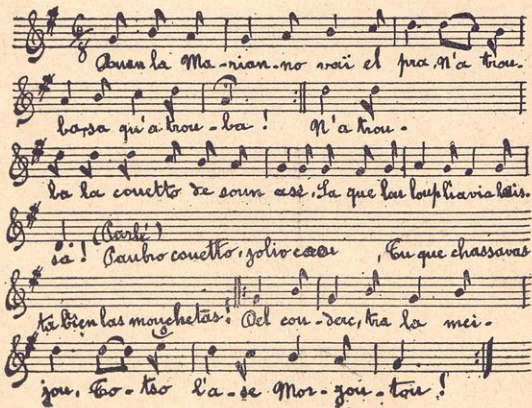 Quan la Ma-rian-no vaï el pra, N'a trou-
ba, sa qu'a trou-ba! N'a trou-
ba la couetto de soun ase, Sa que lou loup li avia lais-
sa! (Parlé) Paubro couetto, jolio , Tu que chassavas
ta bien las mouchetas! Del cou-derc, tra la mei-
jou, To-tso l'a-se Mar-gou-tou!